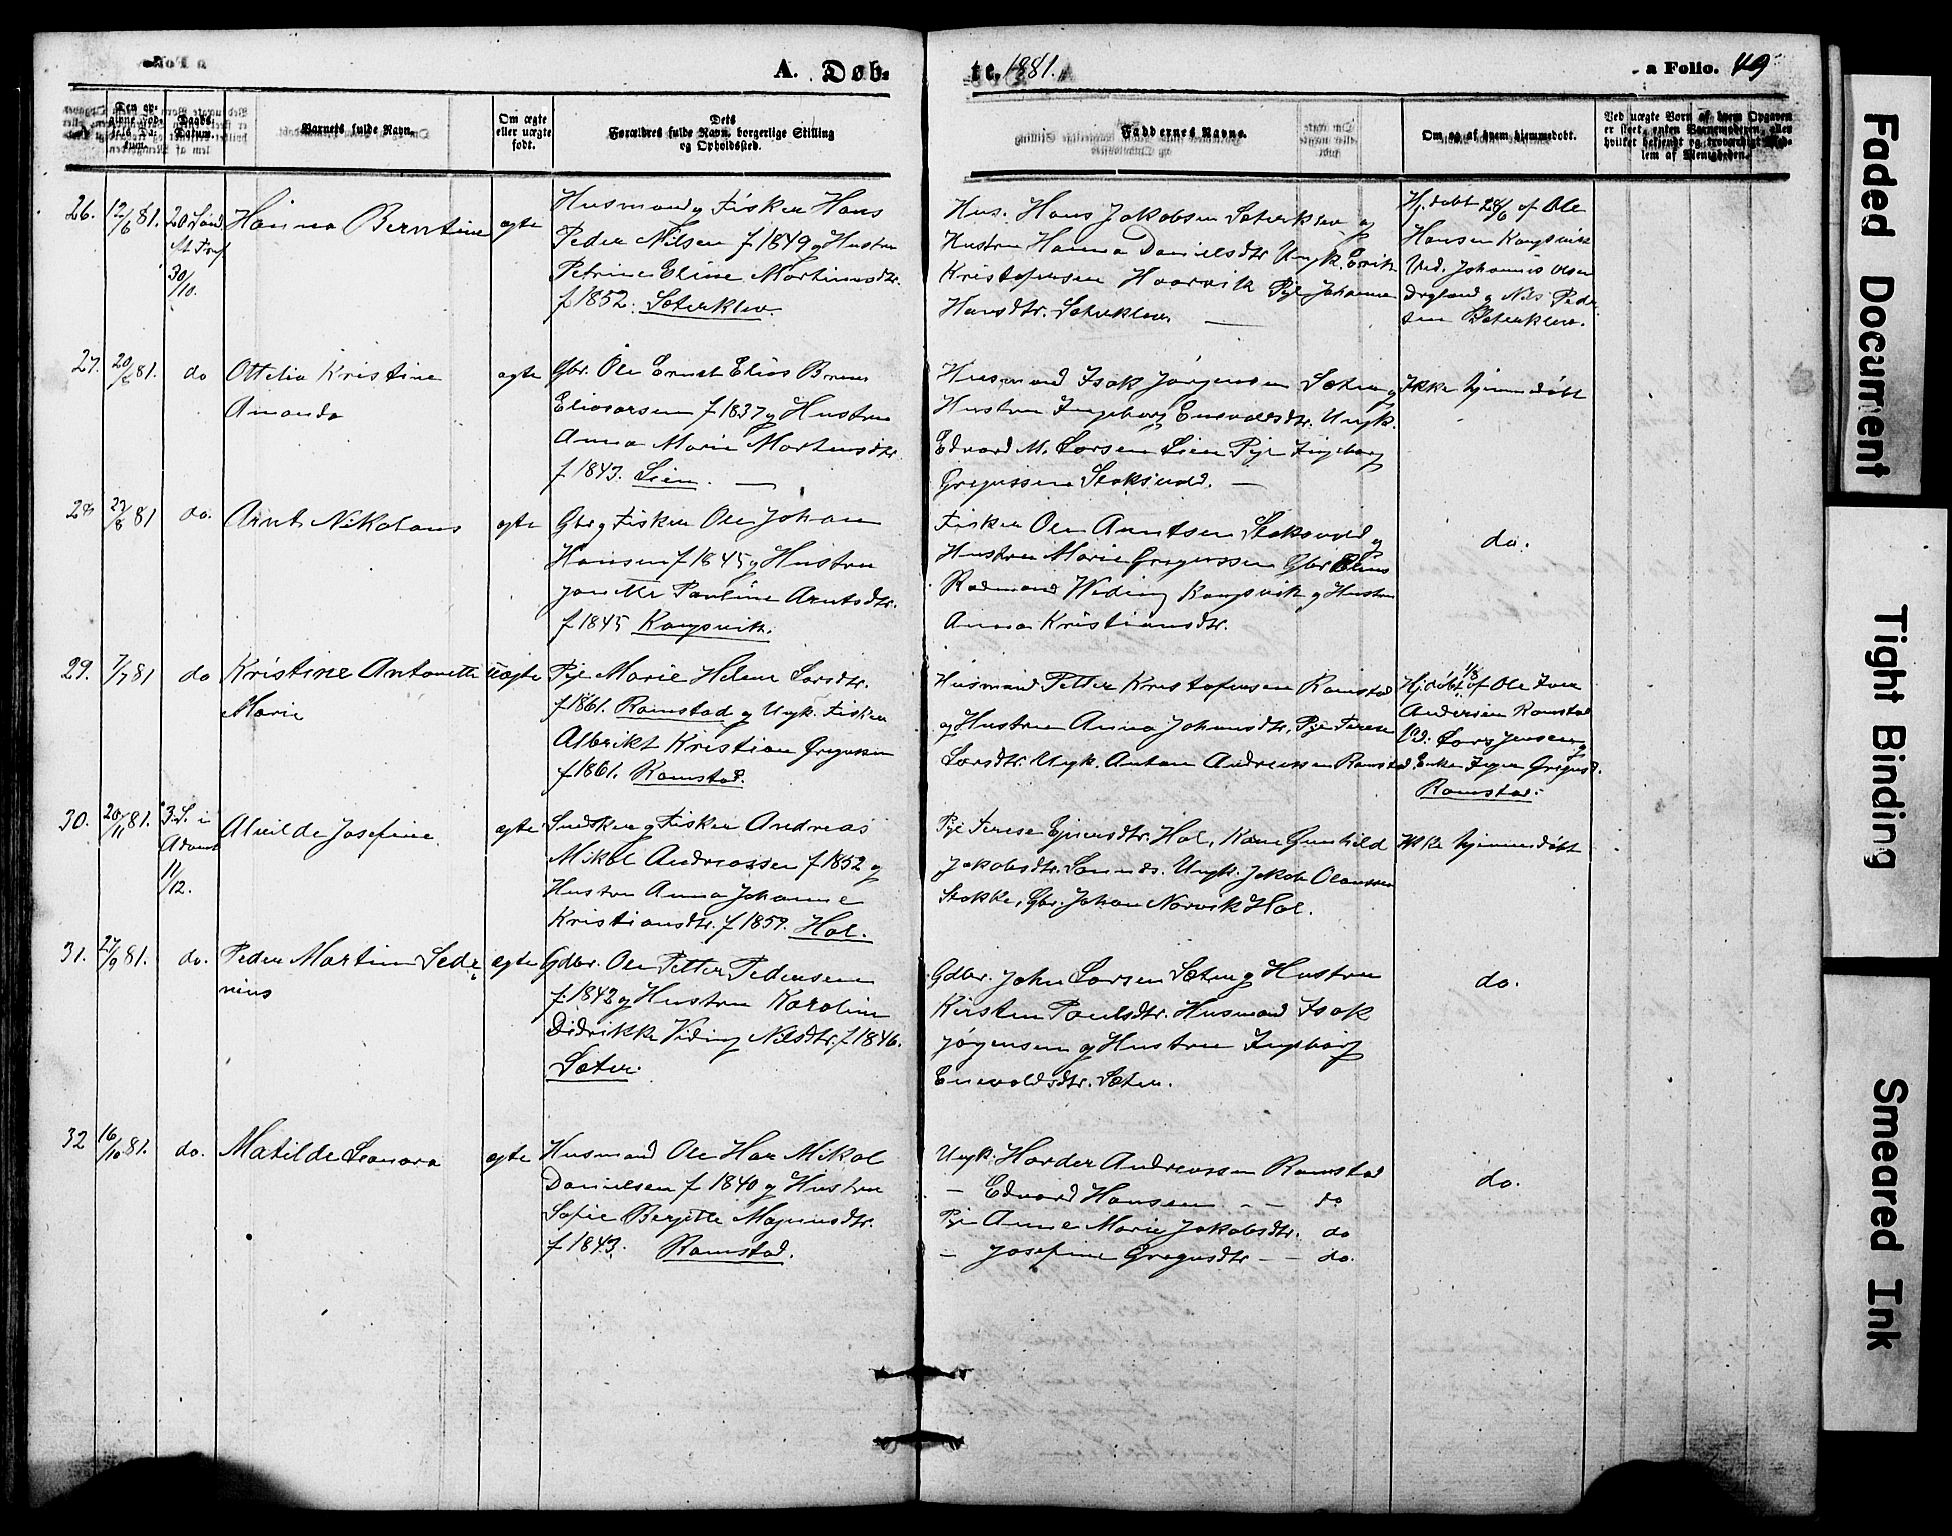 A. Døbte. 1881.
a Folio. 49
Den op-
givne Fød-
sels Da-
tum.
Daabs-
Datum.
Barnets fulde Navn.
Om ægte
eller uægte
født.
Dets
Forældres fulde Navn, borgerlige Stilling
og Opholdssted.
Faddernes Navne.
Om og af hvem hjemmedøbt.
Ved uægte Børn af hvem Opgaven
er skeet, enten Barnemoderen, eller
hvilket bekjendt og troværdigt Med-
lem af Menigheden.
26. 12/6 81. 20 Sønd.
30/10.
Hanna Berntine
ægte
Husmand og Fisker Hans
Peder Nilsen f 1849 og Hustru
Petrine Eline Martinusdtr.
f 1852. Sæterklev.
Hus. Hans Jakobsen Sæterklev og
Hustru Hanna Danielsdtr. Ungk. Erik
Kristofersen Haarvik Pige Johanne
Hansdtr. Sæterklev. —
Hj. døbt 28/6 af Ole
Hansen Kongsvik
Vid. Johannis Olsen
og Nils Peder
sen Sæterklev.
27. 20/8 81. do
Ottelia Kristine
Amanda
ægte
Gbr. Ole Ernst Elias Brun
Eliasarsen f 1837 og Hustru
Anna Marie Mortensdtr.
f 1843. Lien. —
Husmand Isak Jørgensen Sæter og
Hustru Ingeborg Enevoldsdtr. Ungk.
Edvard M. Larsen Lien Pige Ingeborg
Gregussen Stoksvold. —
Ikke hjemmedøbt
28. 22/8 81 do.
Arnt Nikolaus
ægte
Gbr og Fisker Ole Johan
Hansen f 1845 og Hustru
Janette Pauline Arntsdtr.
f 1845 Kongsvik.
Fisker Ole Arntsen Stoksvold og
Hustru Marie Gregussen Gbr
Rodmand Weding Kongsvik og Hustru
Anna Kristiansdtr.
do.
29. 7/7 81 do
Kristine Antonette
Marie
uægte
Pige Marie Helene Larsdtr.
f 1861. Ramstad og Ungk. Fisker
Albrikt Kristian Gregussen
f 1861. Ramstad.
Husmand Petter Kristofersen Ramstad
og Hustru Anna Johansdtr. Pige Terese
Larsdtr. Ungk. Anton Andreassen Ramstad.
Hj. døbt 1/8 af Ole Iver
Andersen Ramstad
Vid. Lars Jensen og
Enke Inger Gregusd.
Ramstad.
30. 20/11 81. 3. S. i
Advent
11/12.
Alvilde Josefine
ægte
Snedker og Fisker Andreas
Mikal Andreassen f 1852 og
Hustru Anna Johanne
Kristiansdtr. f 1859. Hol.
Pige Terese Ejnersdtr. Hol, Kone Gunhild
Jakobsdtr. Ungk. Jakob Olaussen
Stokke, Gbr. Johan Norvik Hol.
Ikke hjemmedøbt
31. 27/9 81. do.
Peder Martin Sede-
nius
ægte
Gdbr. Ole Petter Pedersen
f. 1842 og Hustru Karoline
Didrikke Viding Nilsdtr. f 1846.
Sæter.
Gdbr. John Larsen Sæter og Hustru
Kirsten Paulsdtr. Husmand Isak
Jørgensen og Hustru Ingeborg
Enevoldsdtr. Sæter.
do.
32 16/10 81. do.
Matilde Leonora
ægte
Husmand Ole Har Mikal
Danielsen f 1840 og Hustru
Sofie Bergitte Magnusdtr.
f 1843. Ramstad.
Ungk. Harder Andreassen Ramstad
— Edvard Hansen — — do
Pige Anne Marie Jakobsdtr. do
— Josefine Gregusdtr — — do.
do.
Faded Document
Tight Binding
Smeared Ink